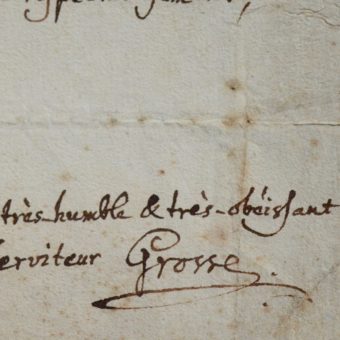 très-humble & très-obéissant
serviteur Grosse.